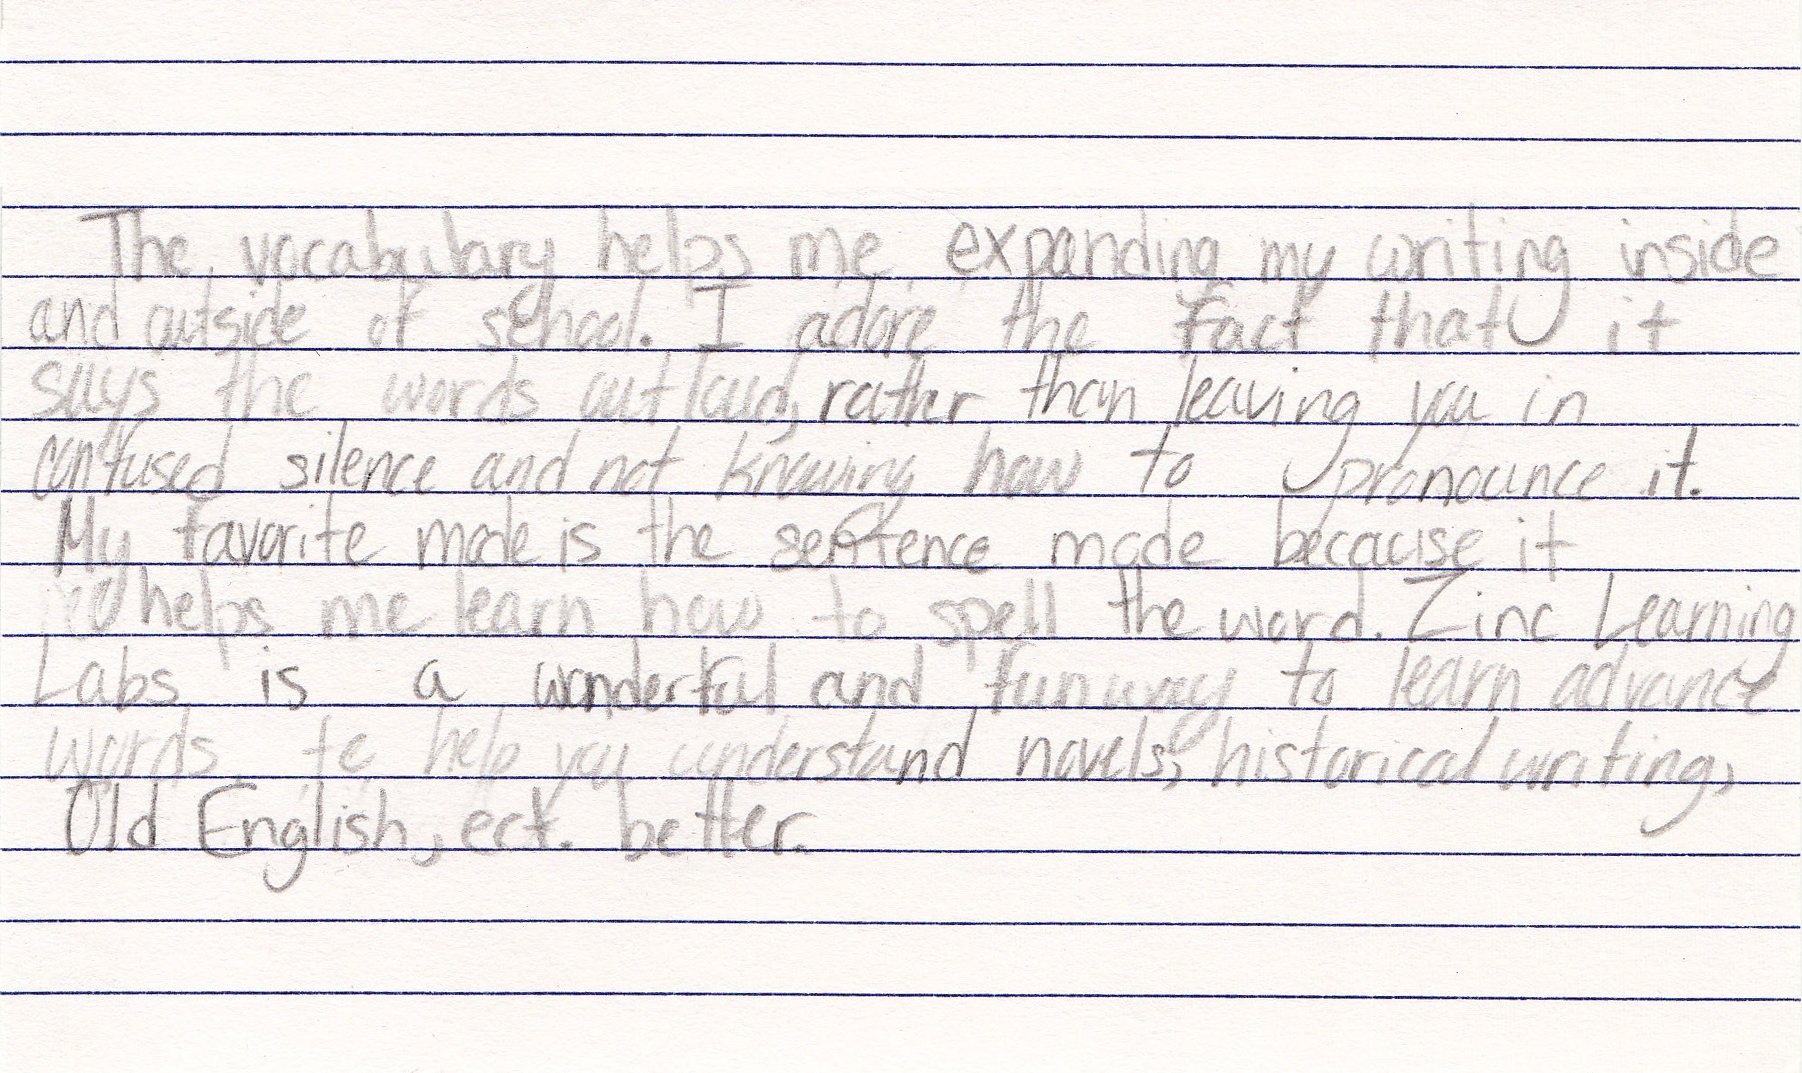 The vocabulary helps me expanding my writing inside
and outside of school. I adore the fact that it
says the words out loud, rather than leaving you in
confused silence and not knowing how to pronounce it.
My favorite mode is the sentence mode because it
helps me learn how to spell the word. Zinc Learning
Labs is a wonderful and fun way to learn advance
words te help you understand novels, historical writing,
Old English, ect. better.